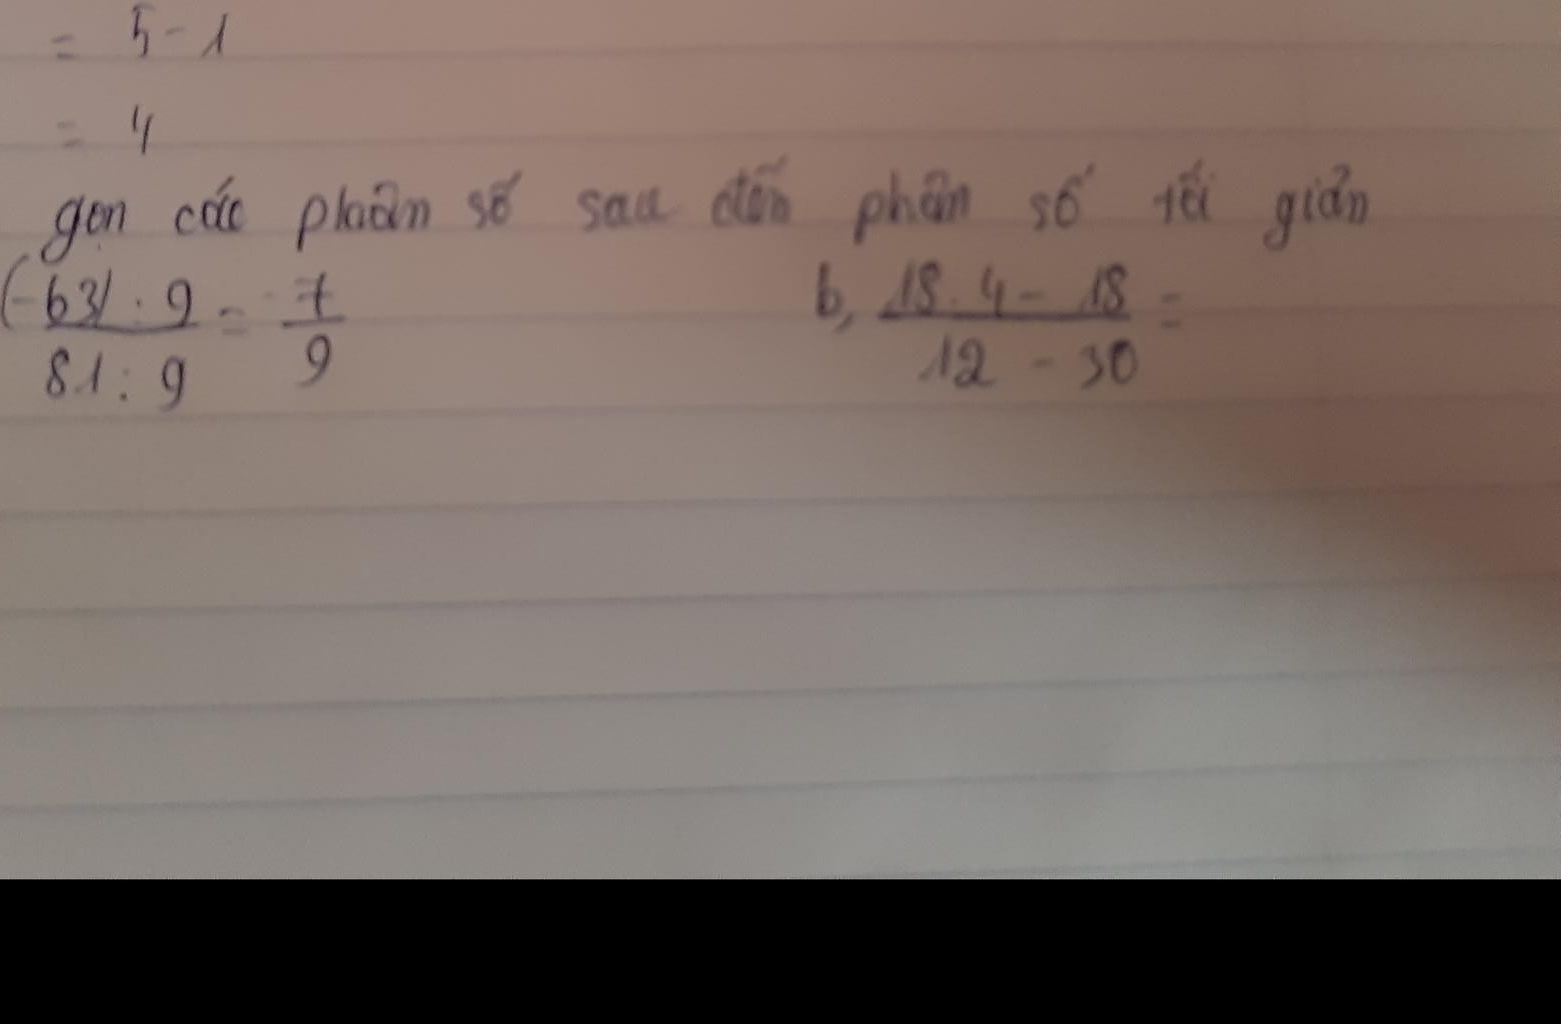 = 5 - 1
= 4
gọn các phân số sau đến phân số tối giản
(-63) : 9 / 81 : 9 = -7 / 9 b, 18 . 4 - 18 / 12 - 30 =